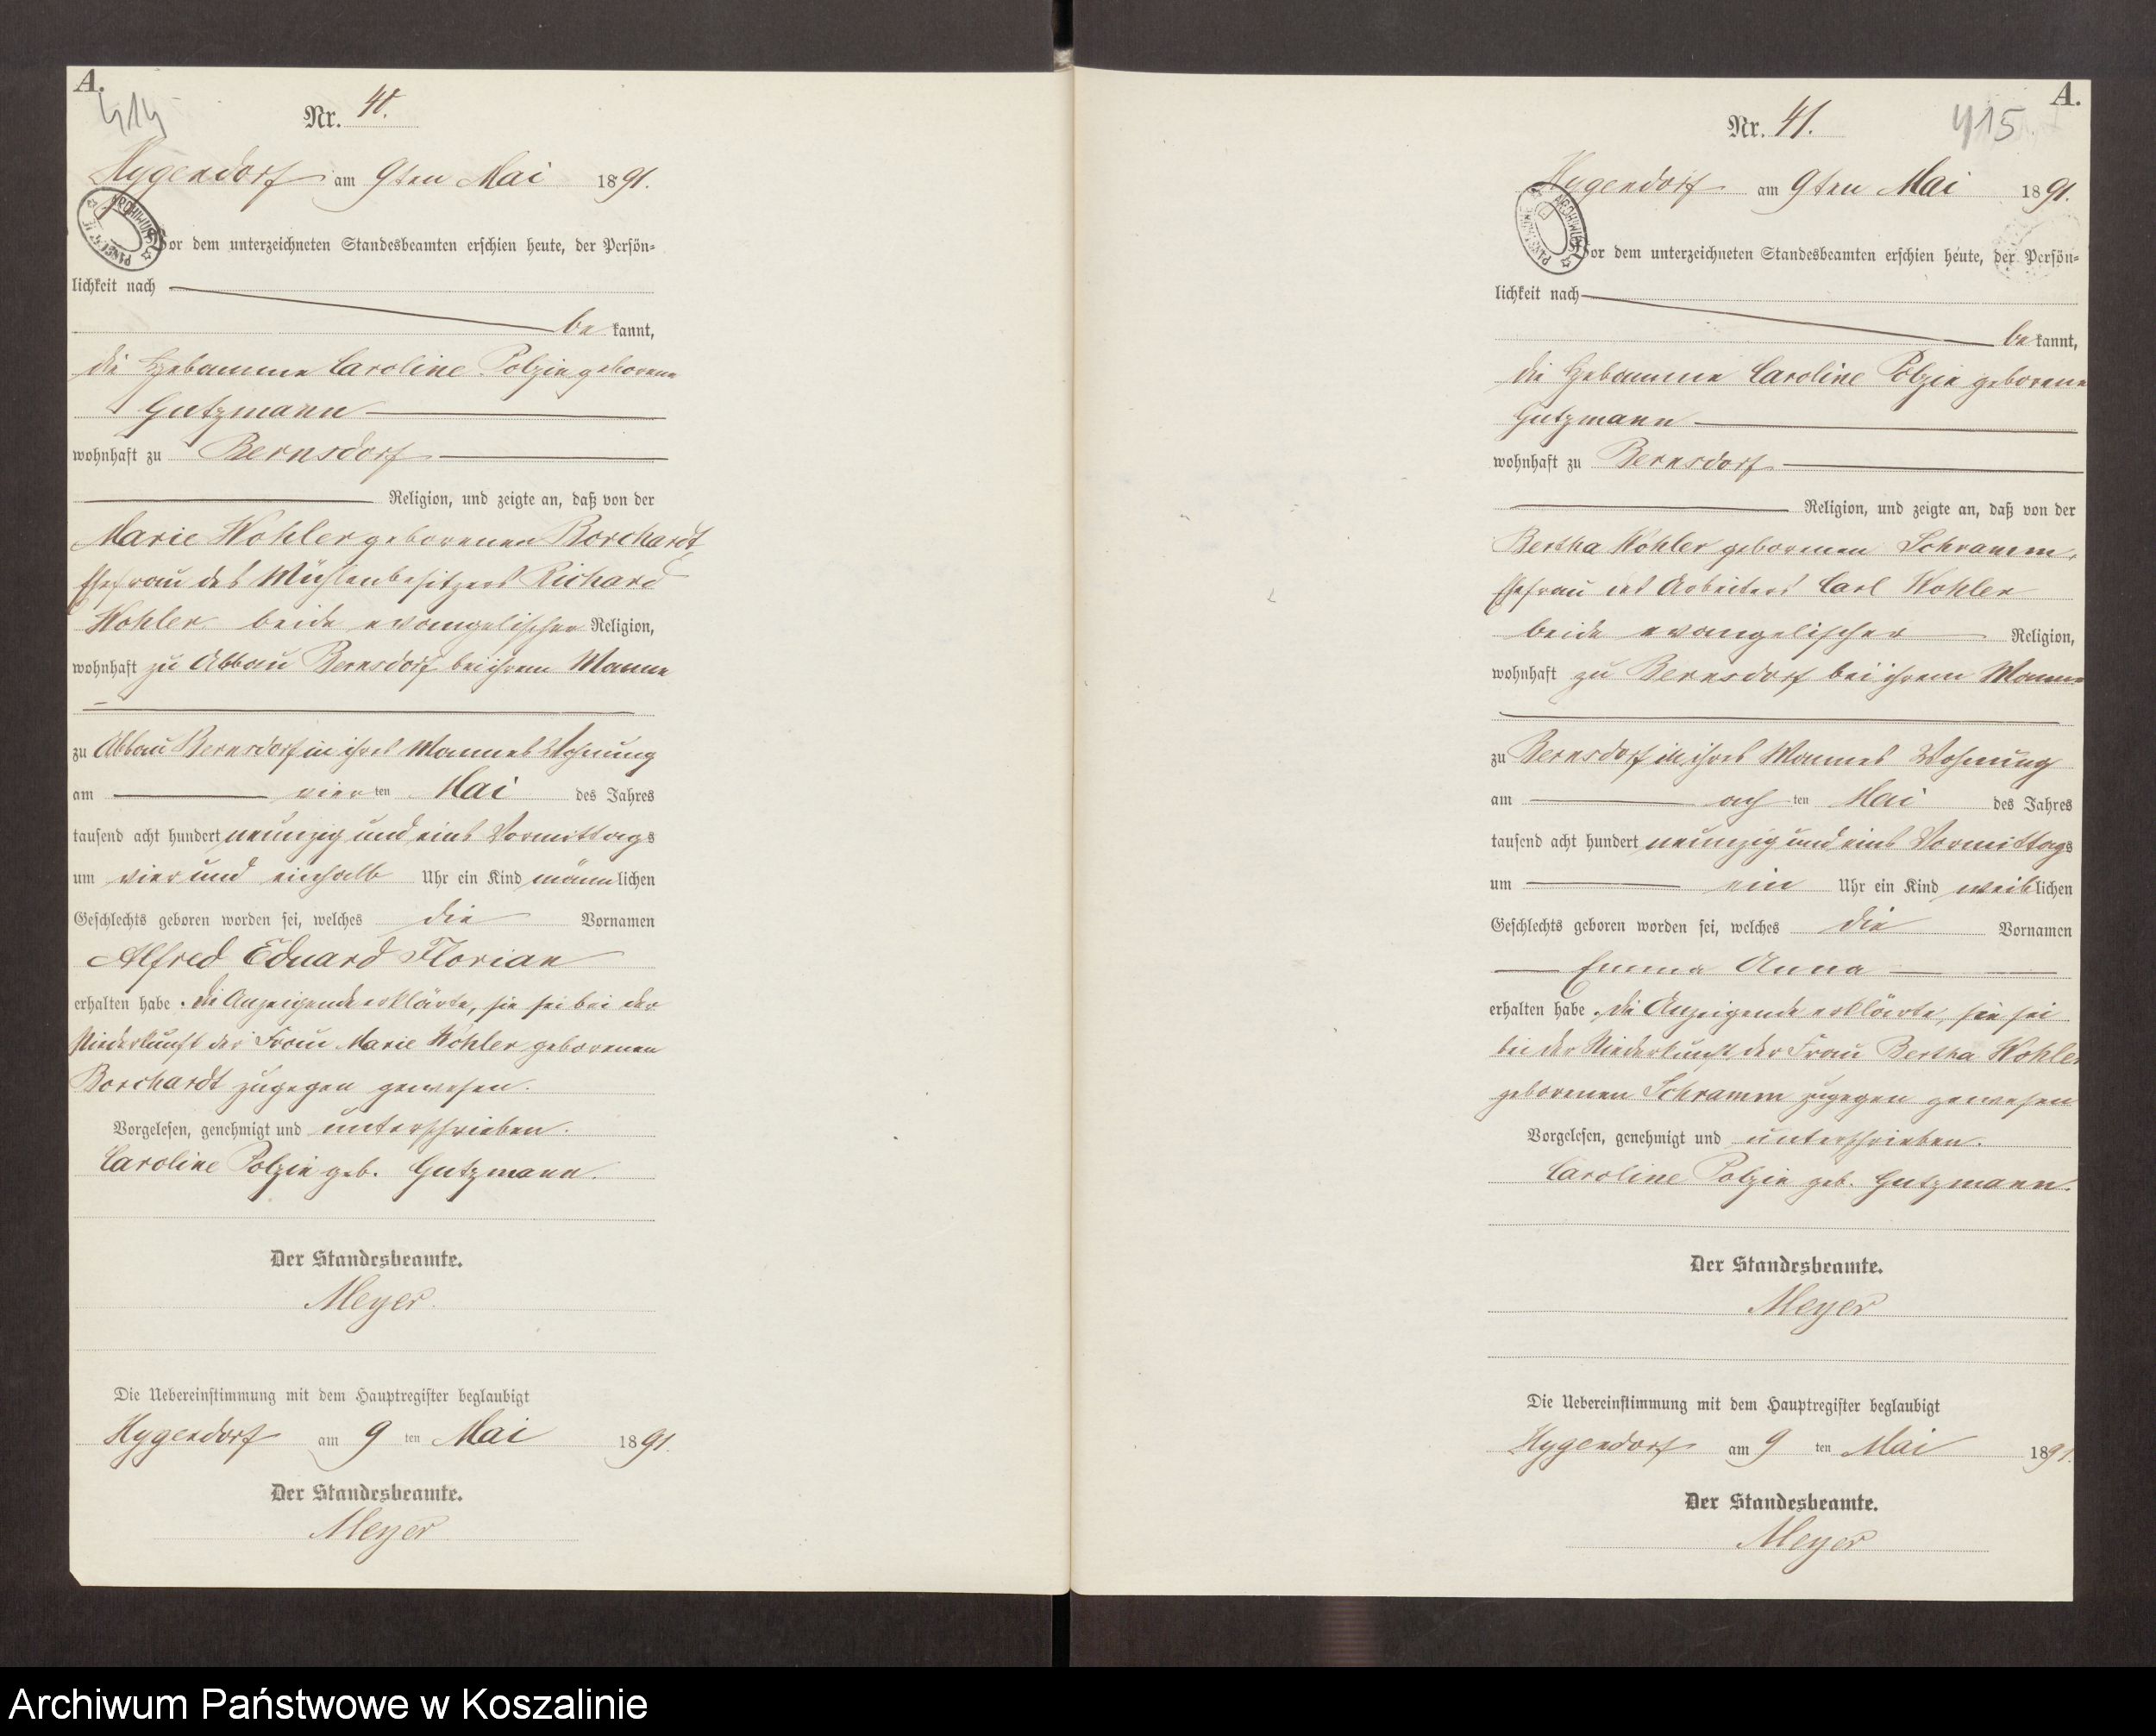 A.
414
Nr. 40.
Hygendorf am 9ten Mai 1891.
Vor dem unterzeichneten Standesbeamten erschien heute, der Persön=
lichkeit nach
be kannt,
die Hebamme Caroline Polzin geborene
Gutzmann
wohnhaft zu Bernsdorf
Religion, und zeigte an, daß von der
Marie Wohler geborenen Borchardt,
Ehefrau des Mühlenbesitzers Richard
Wohler beide evangelischer Religion,
wohnhaft zu Abbau Bernsdorf bei ihrem Manne
zu Abbau Bernsdorf in ihres Mannes Wohnung
am vier ten Mai des Jahres
tausend acht hundert neunzig und eins Vormittags
um vier und einhalb Uhr ein Kind männlichen
Geschlechts geboren worden sei, welches die Vornamen
Alfred Eduard Florian
erhalten habe. Die Anzeigende erklärte, sie sei bei der
Niederkunft der Frau Marie Wohler geborenen
Borchardt zugegen gewesen.
Vorgelesen, genehmigt und unterschrieben.
Caroline Polzin geb. Gutzmann.
Der Standesbeamte.
Meyer.
Die Uebereinstimmung mit dem Hauptregister beglaubigt
Hygendorf am 9 ten Mai 1891.
Der Standesbeamte.
Meyer
A.
415.
Nr. 41.
Hygendorf am 9ten Mai 1891.
Vor dem unterzeichneten Standesbeamten erschien heute, der Persön=
lichkeit nach
be kannt,
die Hebamme Caroline Polzin geborene
Gutzmann
wohnhaft zu Bernsdorf
Religion, und zeigte an, daß von der
Bertha Wohler geborenen Schramm,
Ehefrau des Arbeiters Carl Wohler
beide evangelischer Religion,
wohnhaft zu Bernsdorf bei ihrem Manne
zu Bernsdorf in ihres Mannes Wohnung
am ach ten Mai des Jahres
tausend acht hundert neunzig und eins Vormittags
um ein Uhr ein Kind weiblichen
Geschlechts geboren worden sei, welches die Vornamen
Emma Anna
erhalten habe. Die Anzeigende erklärte, sie sei
bei der Niederkunft der Frau Bertha Wohler
geborenen Schramm zugegen gewesen
Vorgelesen, genehmigt und unterschrieben.
Caroline Polzin geb. Gutzmann.
Der Standesbeamte.
Meyer
Die Uebereinstimmung mit dem Hauptregister beglaubigt
Hygendorf am 9 ten Mai 1891.
Der Standesbeamte.
Meyer
Archiwum Państwowe w Koszalinie